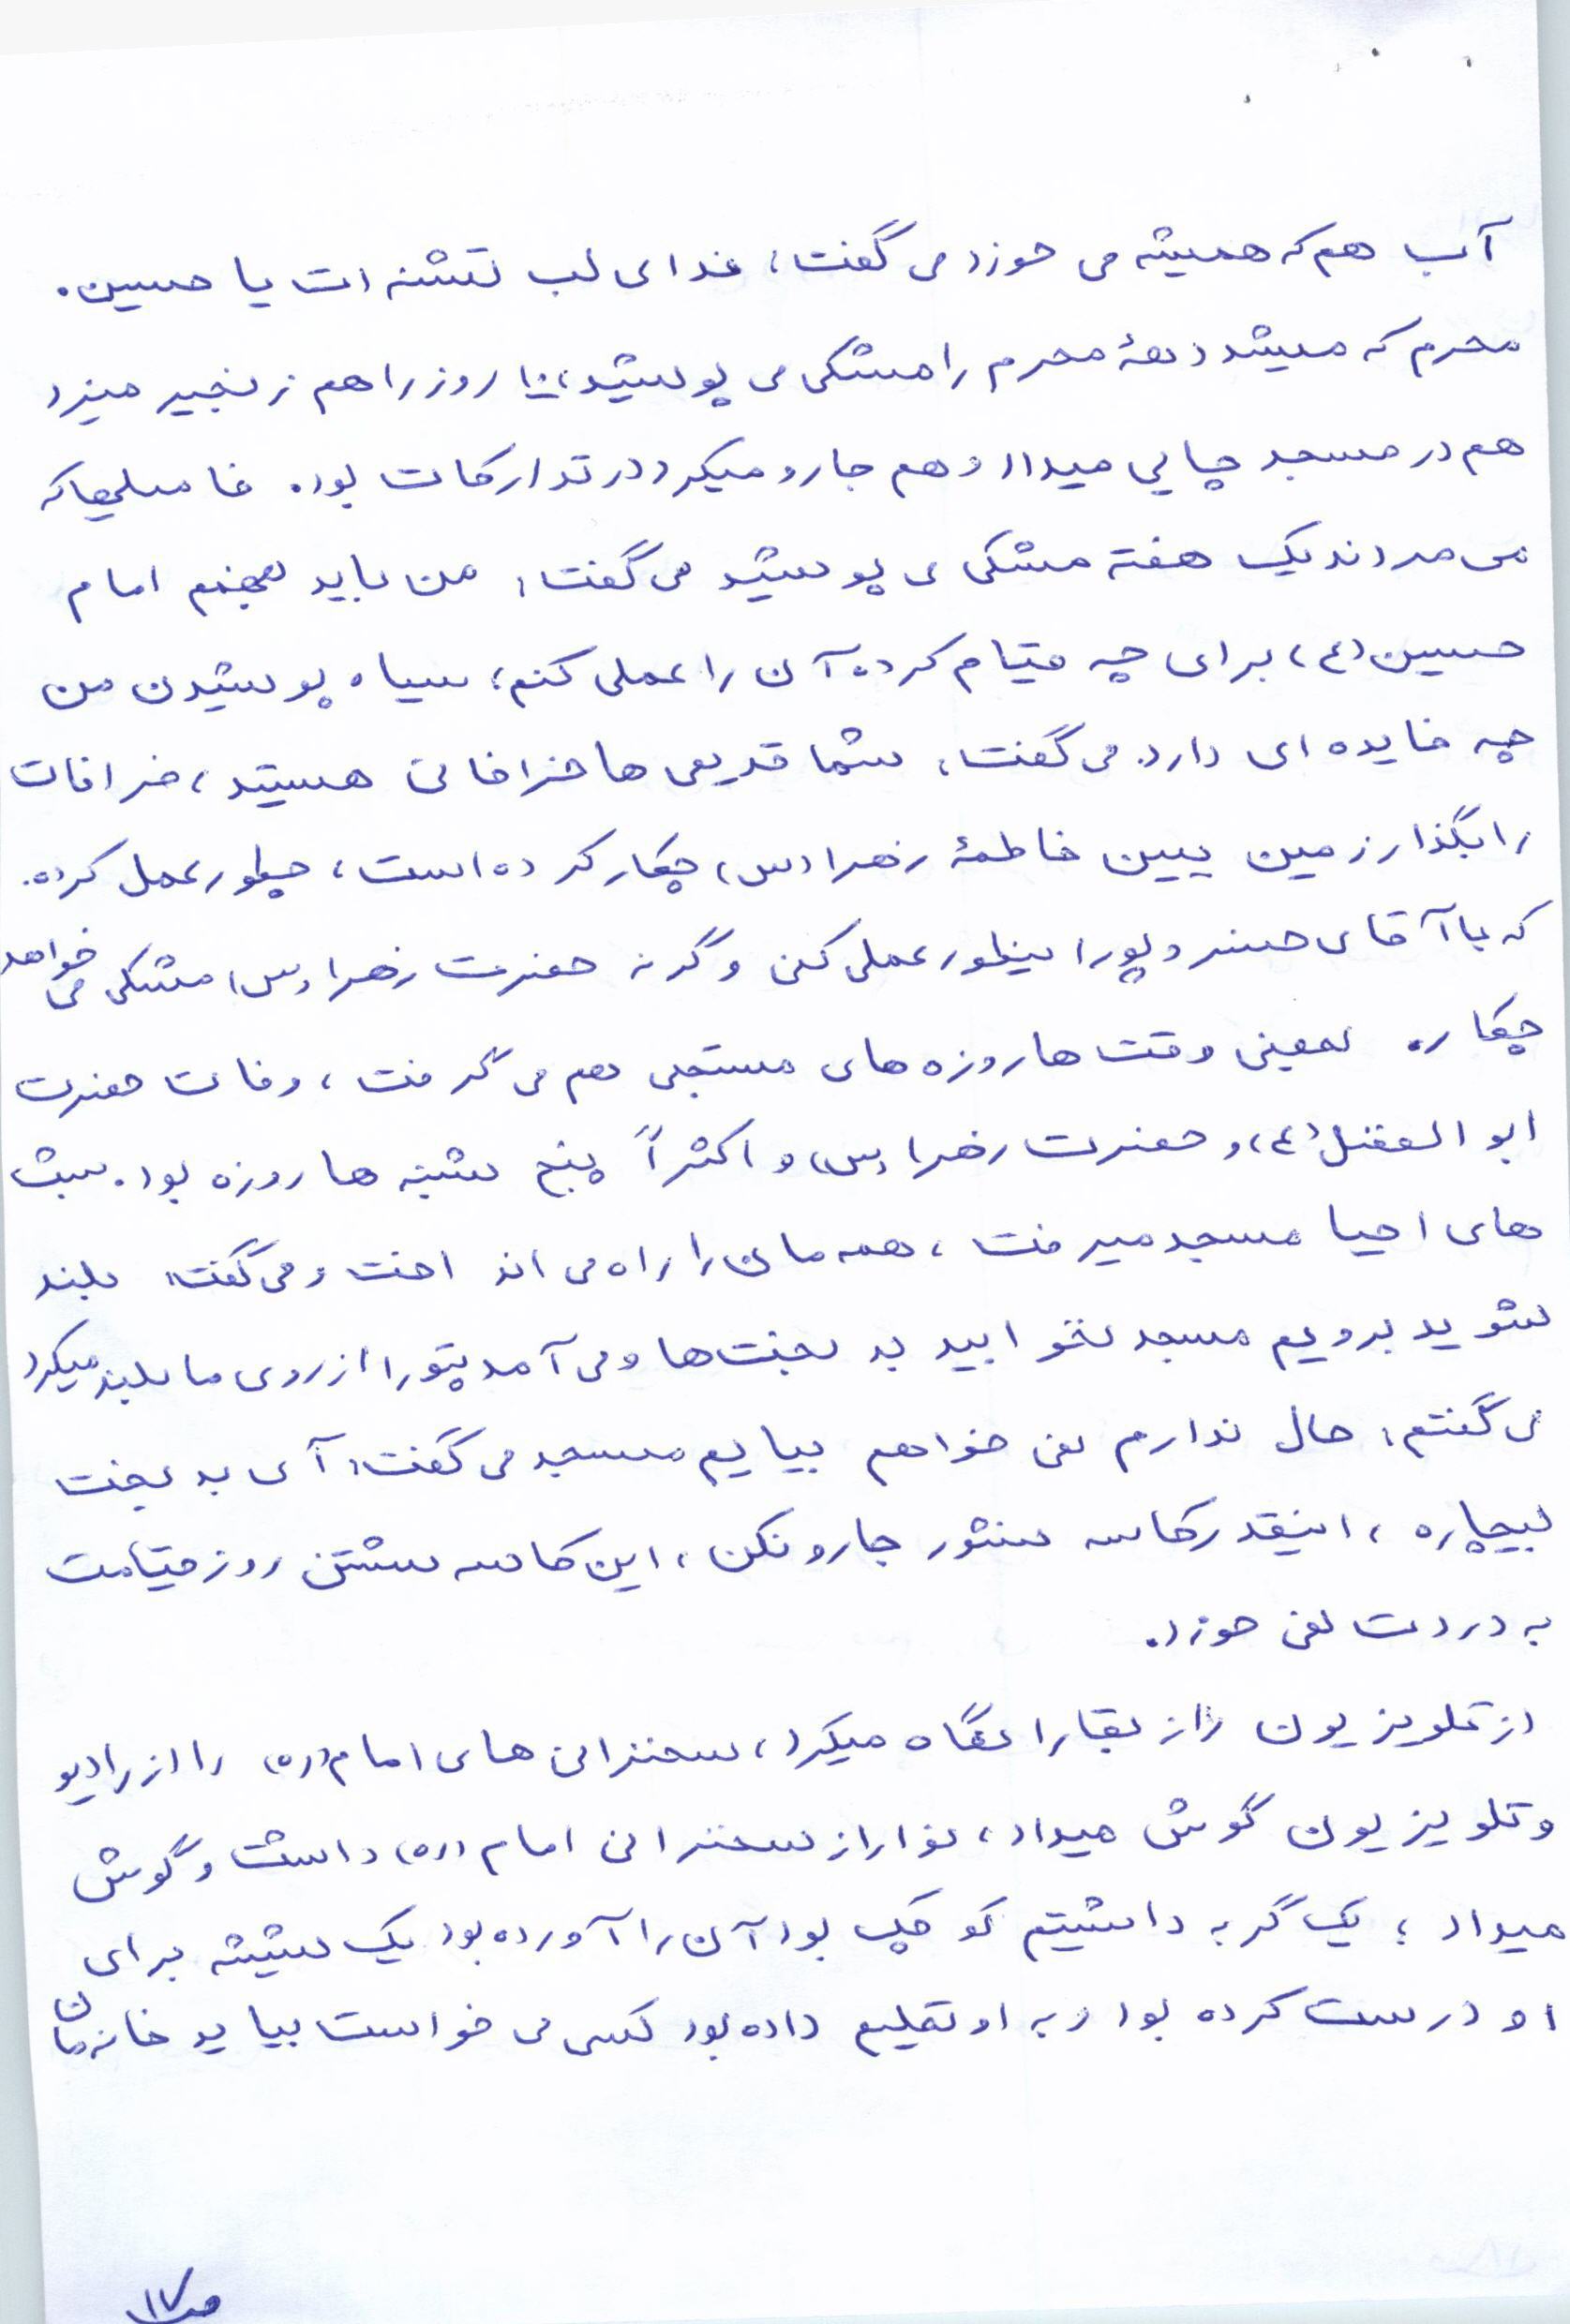 آب هم که همیشه می خورد می گفت: فدای لب تشنه ات یا حسین.
محرم که میشد دههٔ محرم را مشکی می پوشید، ۱۰ روز را هم زنجیر میزد
هم در مسجد چایی میداد و هم جارو میکرد در تدارکات بود. فامیلیها که
می مردند یک هفته مشکی می پوشید می گفت: من باید بفهمم امام
حسین (ع) برای چه قیام کرده آن را عملی کنم، سیاه پوشیدن من
چه فایده ای دارد. می گفت: شما قدیمی ها خرافاتی هستید، خرافات
را بگذار زمین ببین فاطمهٔ زهرا (س) چکار کرده است، چطور عمل کرده.
که با آقای خسروپور اینطور عملی کنی وگرنه حضرت زهرا (س) مشکی می خواهد
چکار. بعضی وقت ها روزه های مستحبی هم می گرفت، وفات حضرت
ابوالفضل (ع) و حضرت زهرا (س) و اکثراً پنج شنبه ها روزه بود. شب
های احیا مسجد میرفت، همه مان را راه می انداخت و می گفت: بلند
شوید برویم مسجد نخوابید بدبخت ها و می آمد پتو را از روی ما بلند میکرد
می گفتم: حال ندارم نمی خواهم بیایم مسجد می گفت: آی بدبخت
بیچاره، اینقدر کاسه نشور جارو نکن، این کاسه شستن روز قیامت
به دردت نمی خورد.
از تلویزیون راز بقا را نگاه میکرد، سخنرانی های امام (ره) را از رادیو
و تلویزیون گوش میداد، نوار از سخنرانی امام (ره) داشت و گوش
میداد؛ یک گربه داشتیم کوچک بود آن را آورده بود یک شیشه برای
او درست کرده بود و به او تعلیم داده بود کسی می خواست بیاید خانه مان
ص۱۷